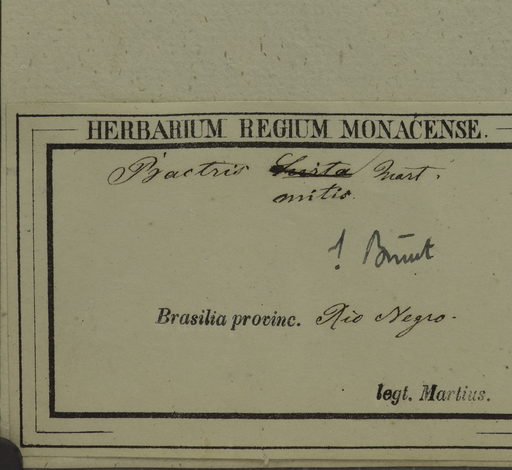 HERBARIUM REGIUM MONACENSE.
Bactris Mart.
mitis
!
Brasilia provinc. Rio Negro.
legt. Martius.